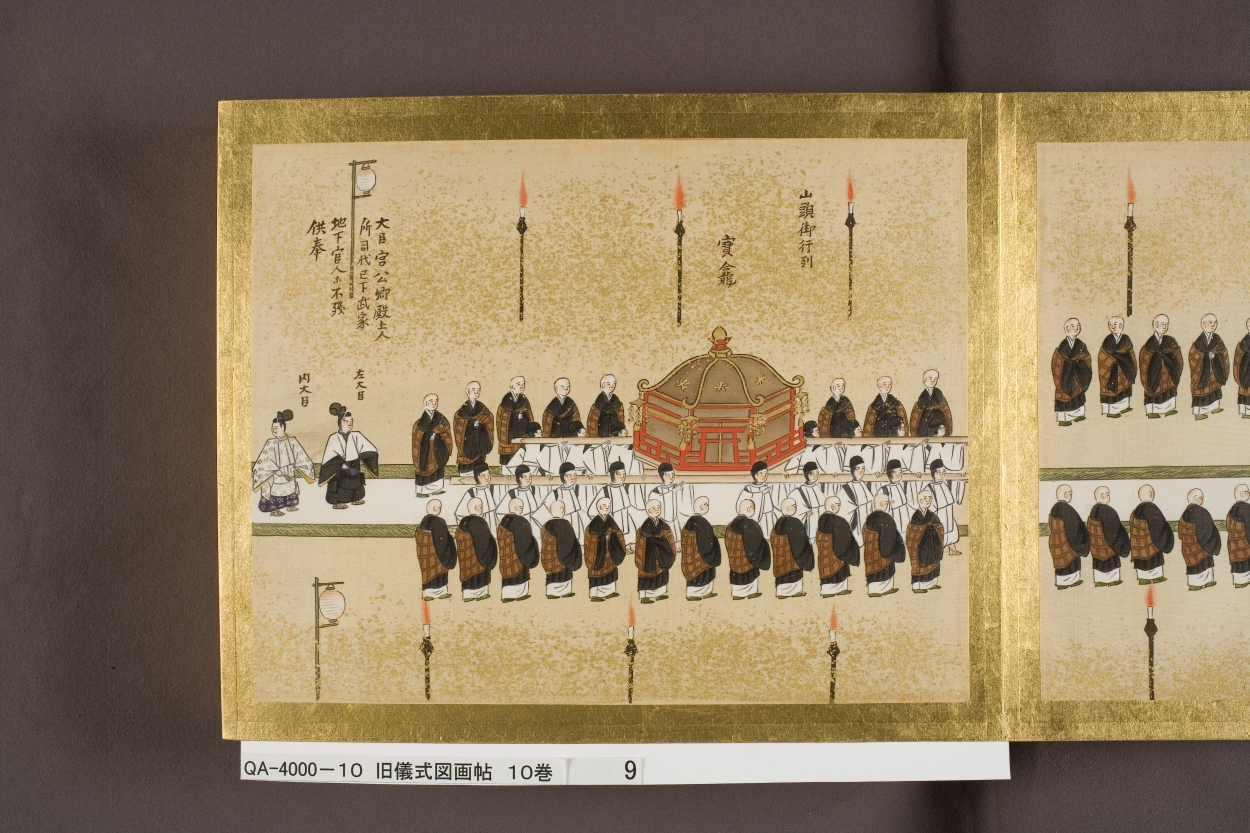 山頭御行列
寶龕
大臣宮公卿殿上人
所司代已下武家
地下官人ホ不残
供奉
左大臣
内大臣
QA-4000-10 旧儀式図画帖 10巻 9